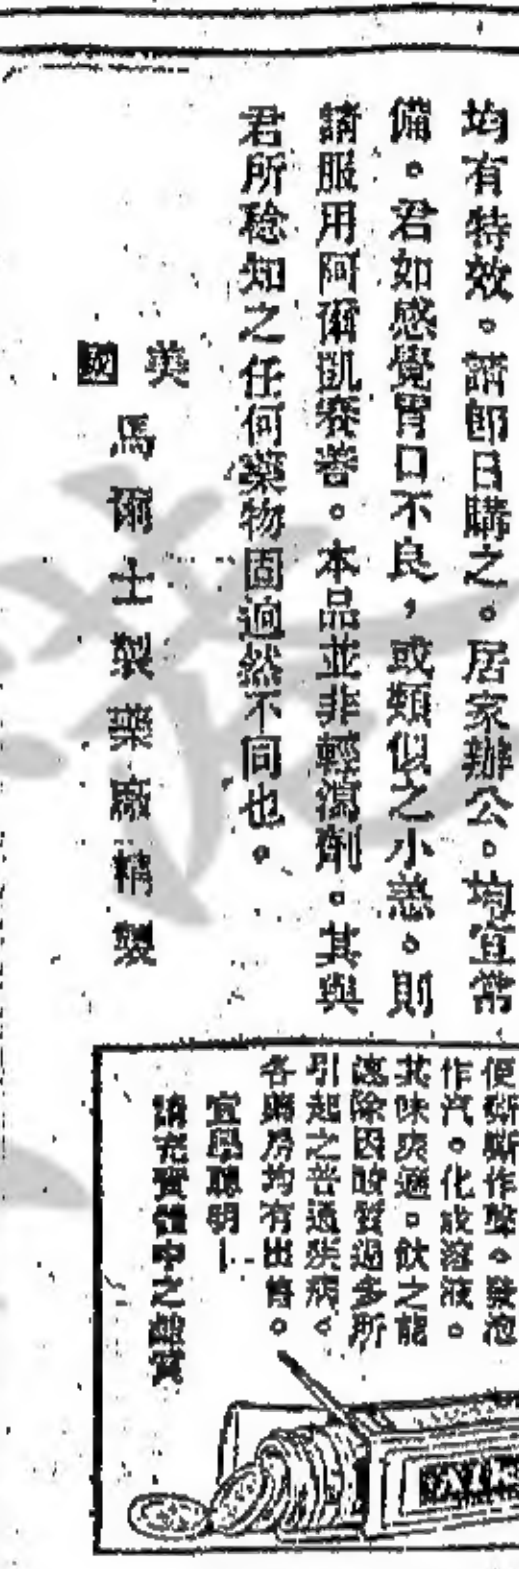 均有特效。請即日購之。居家辦公。均宜常
備。君如感覺胃口不良，或類似之小恙。則
請服用阿爾凱賽善。本品並非輕瀉劑。其與
君所稔知之任何藥物固迥然不同也。
美國
馬爾士製藥廠精製
便嘶嘶作聲。發泡
作汽。化成溶液。
其味爽適。飲之能
速除因酸質過多所
引起之普通疾病。
各藥房均有出售。
宜學聰明！
請充實體中之鹼質